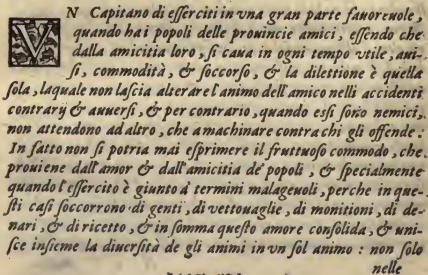 VN Capitano di eſſerciti in vna gran parte fauoreuole,
quando ha i popoli delle prouincie amici, eſſendo che
dalla amicitia loro, ſi caua in ogni tempo vtile, aui-
ſi, commodità, & ſoccorſo, & la dilettione è quella
ſola, laquale non laſcia alterare l'animo dell'amico nelli accidenti
contrarij & auuerſi, & per contrario, quando eſſi ſono nemici,
non attendono ad altro, che a machinare contra chi gli offende:
In fatto non ſi potria mai eſprimere il fruttuoſo commodo, che
prouiene dall'amor & dall'amicitia de' popoli, & ſpecialmente
quando l'eſſercito è giunto à termini malageuoli, perche in que-
ſti caſi ſoccorrono di genti, di vettouaglie, di monitioni, di de-
nari, & di ricetto, & in ſomma queſto amore conſolida, & uni-
ſce inſieme la diuerſità de gli animi in vn ſol animo: non ſolo
nelle